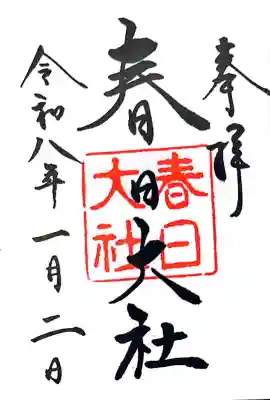 奉拝
春日大社
春日大社
令和八年一月二日